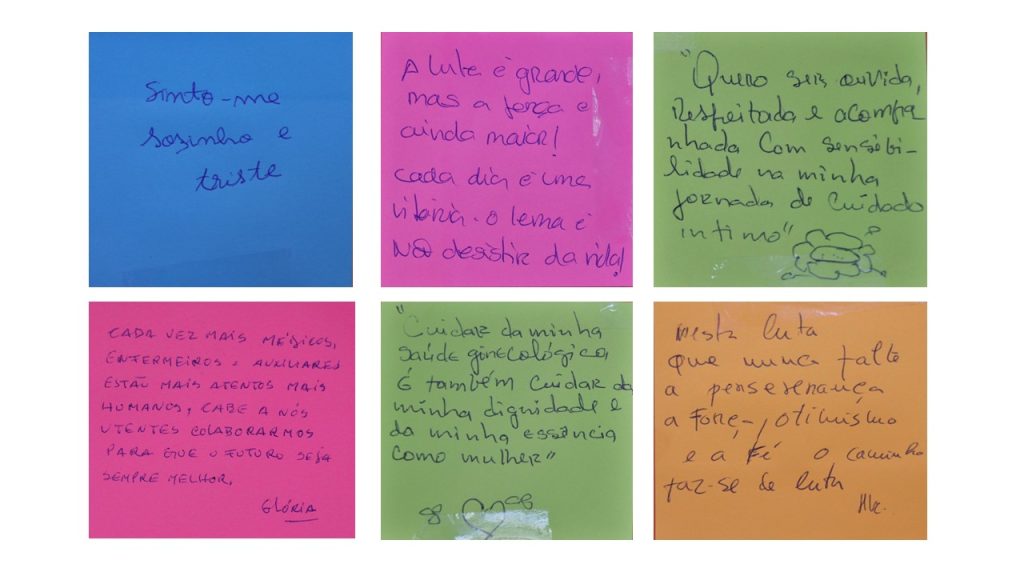 Sinto-me
sozinho e
triste
A luta é grande,
mas a força é
ainda maior!
Cada dia é uma
vitória. o lema é
NÃO desistir da vida!
"Quero ser ouvida,
Respeitada e acompa
nhada com sensibi-
lidade na minha
jornada de cuidado
intimo"
CADA VEZ MAIS MÉDICOS,
ENFERMEIROS E AUXILIARES
ESTÃO MAIS ATENTOS MAIS
HUMANOS, CABE A NÓS
UTENTES COLABORARMOS
PARA QUE O FUTURO SEJA
SEMPRE MELHOR.
GLÓRIA
"Cuidar da minha
saúde ginecológica
É também cuidar da
minha dignidade e
da minha essência
como mulher"
nesta luta
que nunca falte
a perseverança
a Força, otimismo
e a Fé o caminho
faz-se de luta